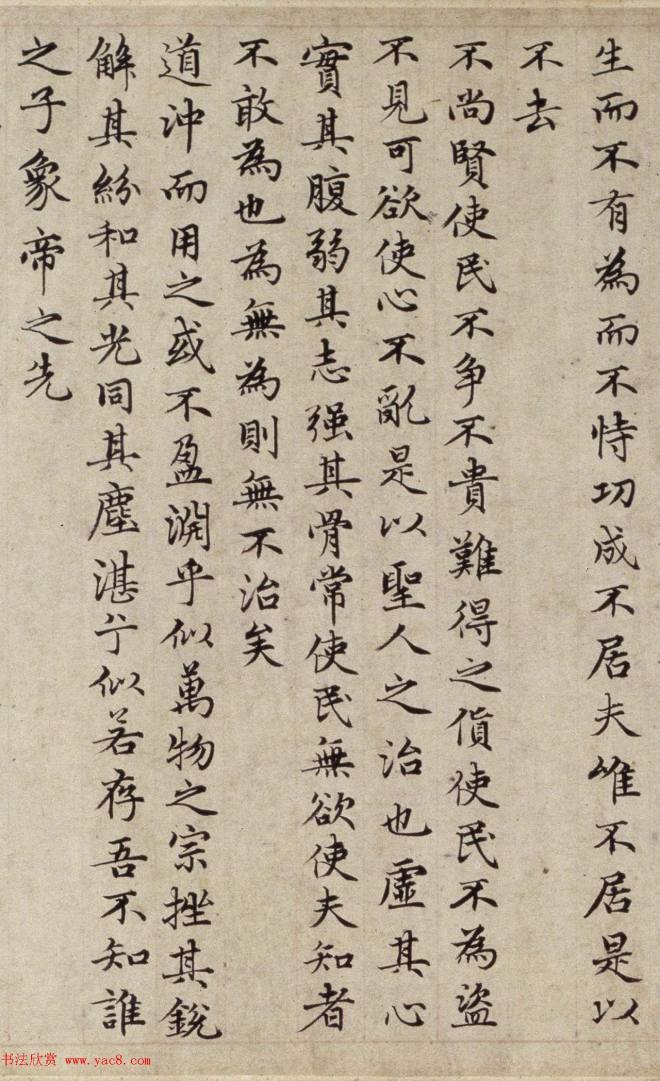 生而不有為而不恃功成不居夫唯不居是以
不去
不尚賢使民不争不貴難得之貨使民不為盜
不見可欲使心不亂是以聖人之治也虛其心
實其腹弱其志强其骨常使民無欲使夫知者
不敢為也為無為則無不治矣
道沖而用之或不盈淵乎似萬物之宗挫其銳
解其紛和其光同其塵湛兮似若存吾不知誰
之子象帝之先
书法欣赏 www.yac8.com